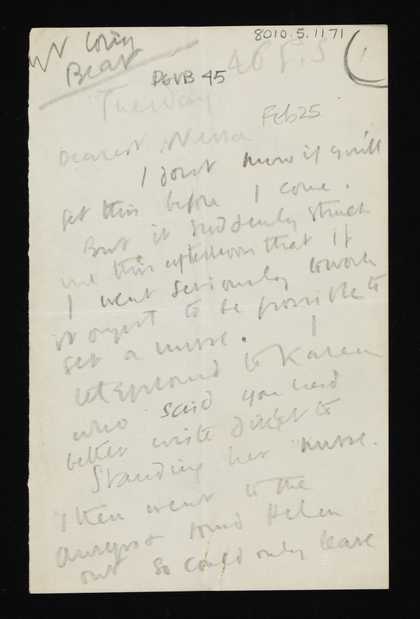 8010.5.1171
Bear
PGVB 45
Tuesday
Feb 25
Dearest Nessa
I dont know if you'll
get this before I come.
But it suddenly struck
me this afternoon that if
I went seriously to work
it ought to be possible to
get a nurse. I
telephoned to Karin
who said you had
better write direct to
her nurse.
I then went to the
found Helen
out so could only leave